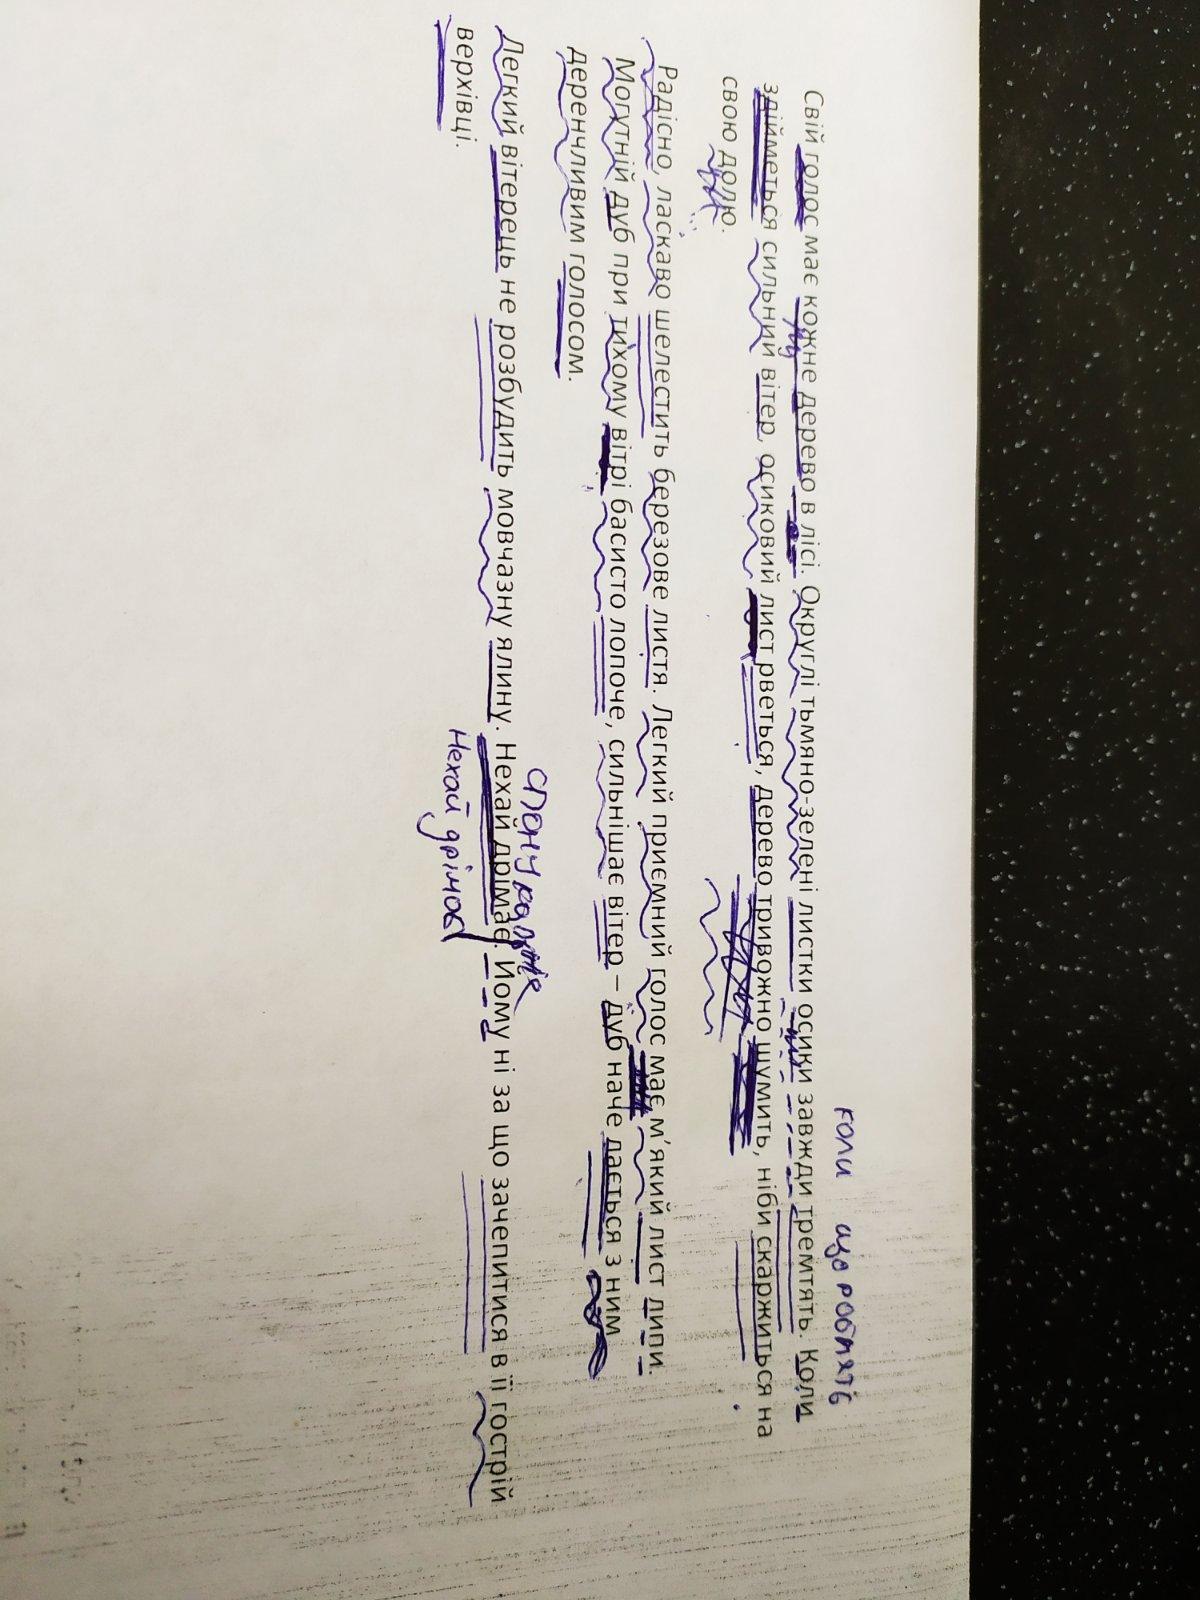 коли що роблять
Свій голос має кожне дерево в лісі. Округлі тьмяно-зелені листки осики завжди тремтять. Коли
здійметься сильний вітер, осиковий лист рветься, дерево тривожно шумить, ніби скаржиться на
свою долю.
Радісно, ласкаво шелестить березове листя. Легкий приємний голос має м'який лист липи.
Могутній дуб при тихому вітрі басисто лопоче, сильнішає вітер – дуб наче лається з ним
деренчливим голосом.
спонукання
Легкий вітерець не розбудить мовчазну ялину. Нехай дрімає. Йому ні за що зачепитися в її гострій
Нехай дрімає
верхівці.